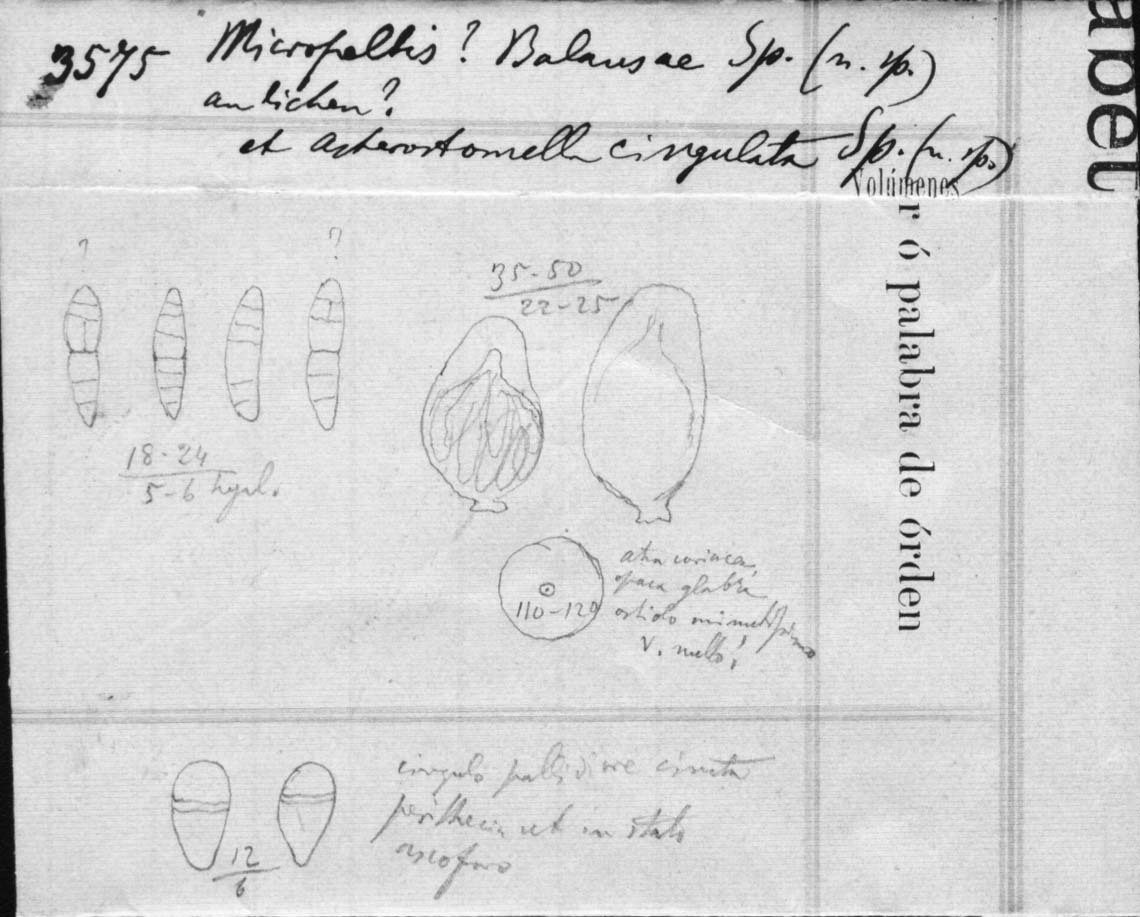 3575 Micropeltis? Balansae Sp. (n. sp.)
an lichen?
et Asterostomella cingulata Sp. (n. sp.)
abet
Volúmenes
r ó palabra de órden
? ?
35-50
22-25
18-24
5-6 hyal.
110-120
atra coriacea,
opaca glabra
ostiolo minutissimo
v. nullo;
cingulo pallidiore cincta
perithecia ut in statu
ascoforo
12
6